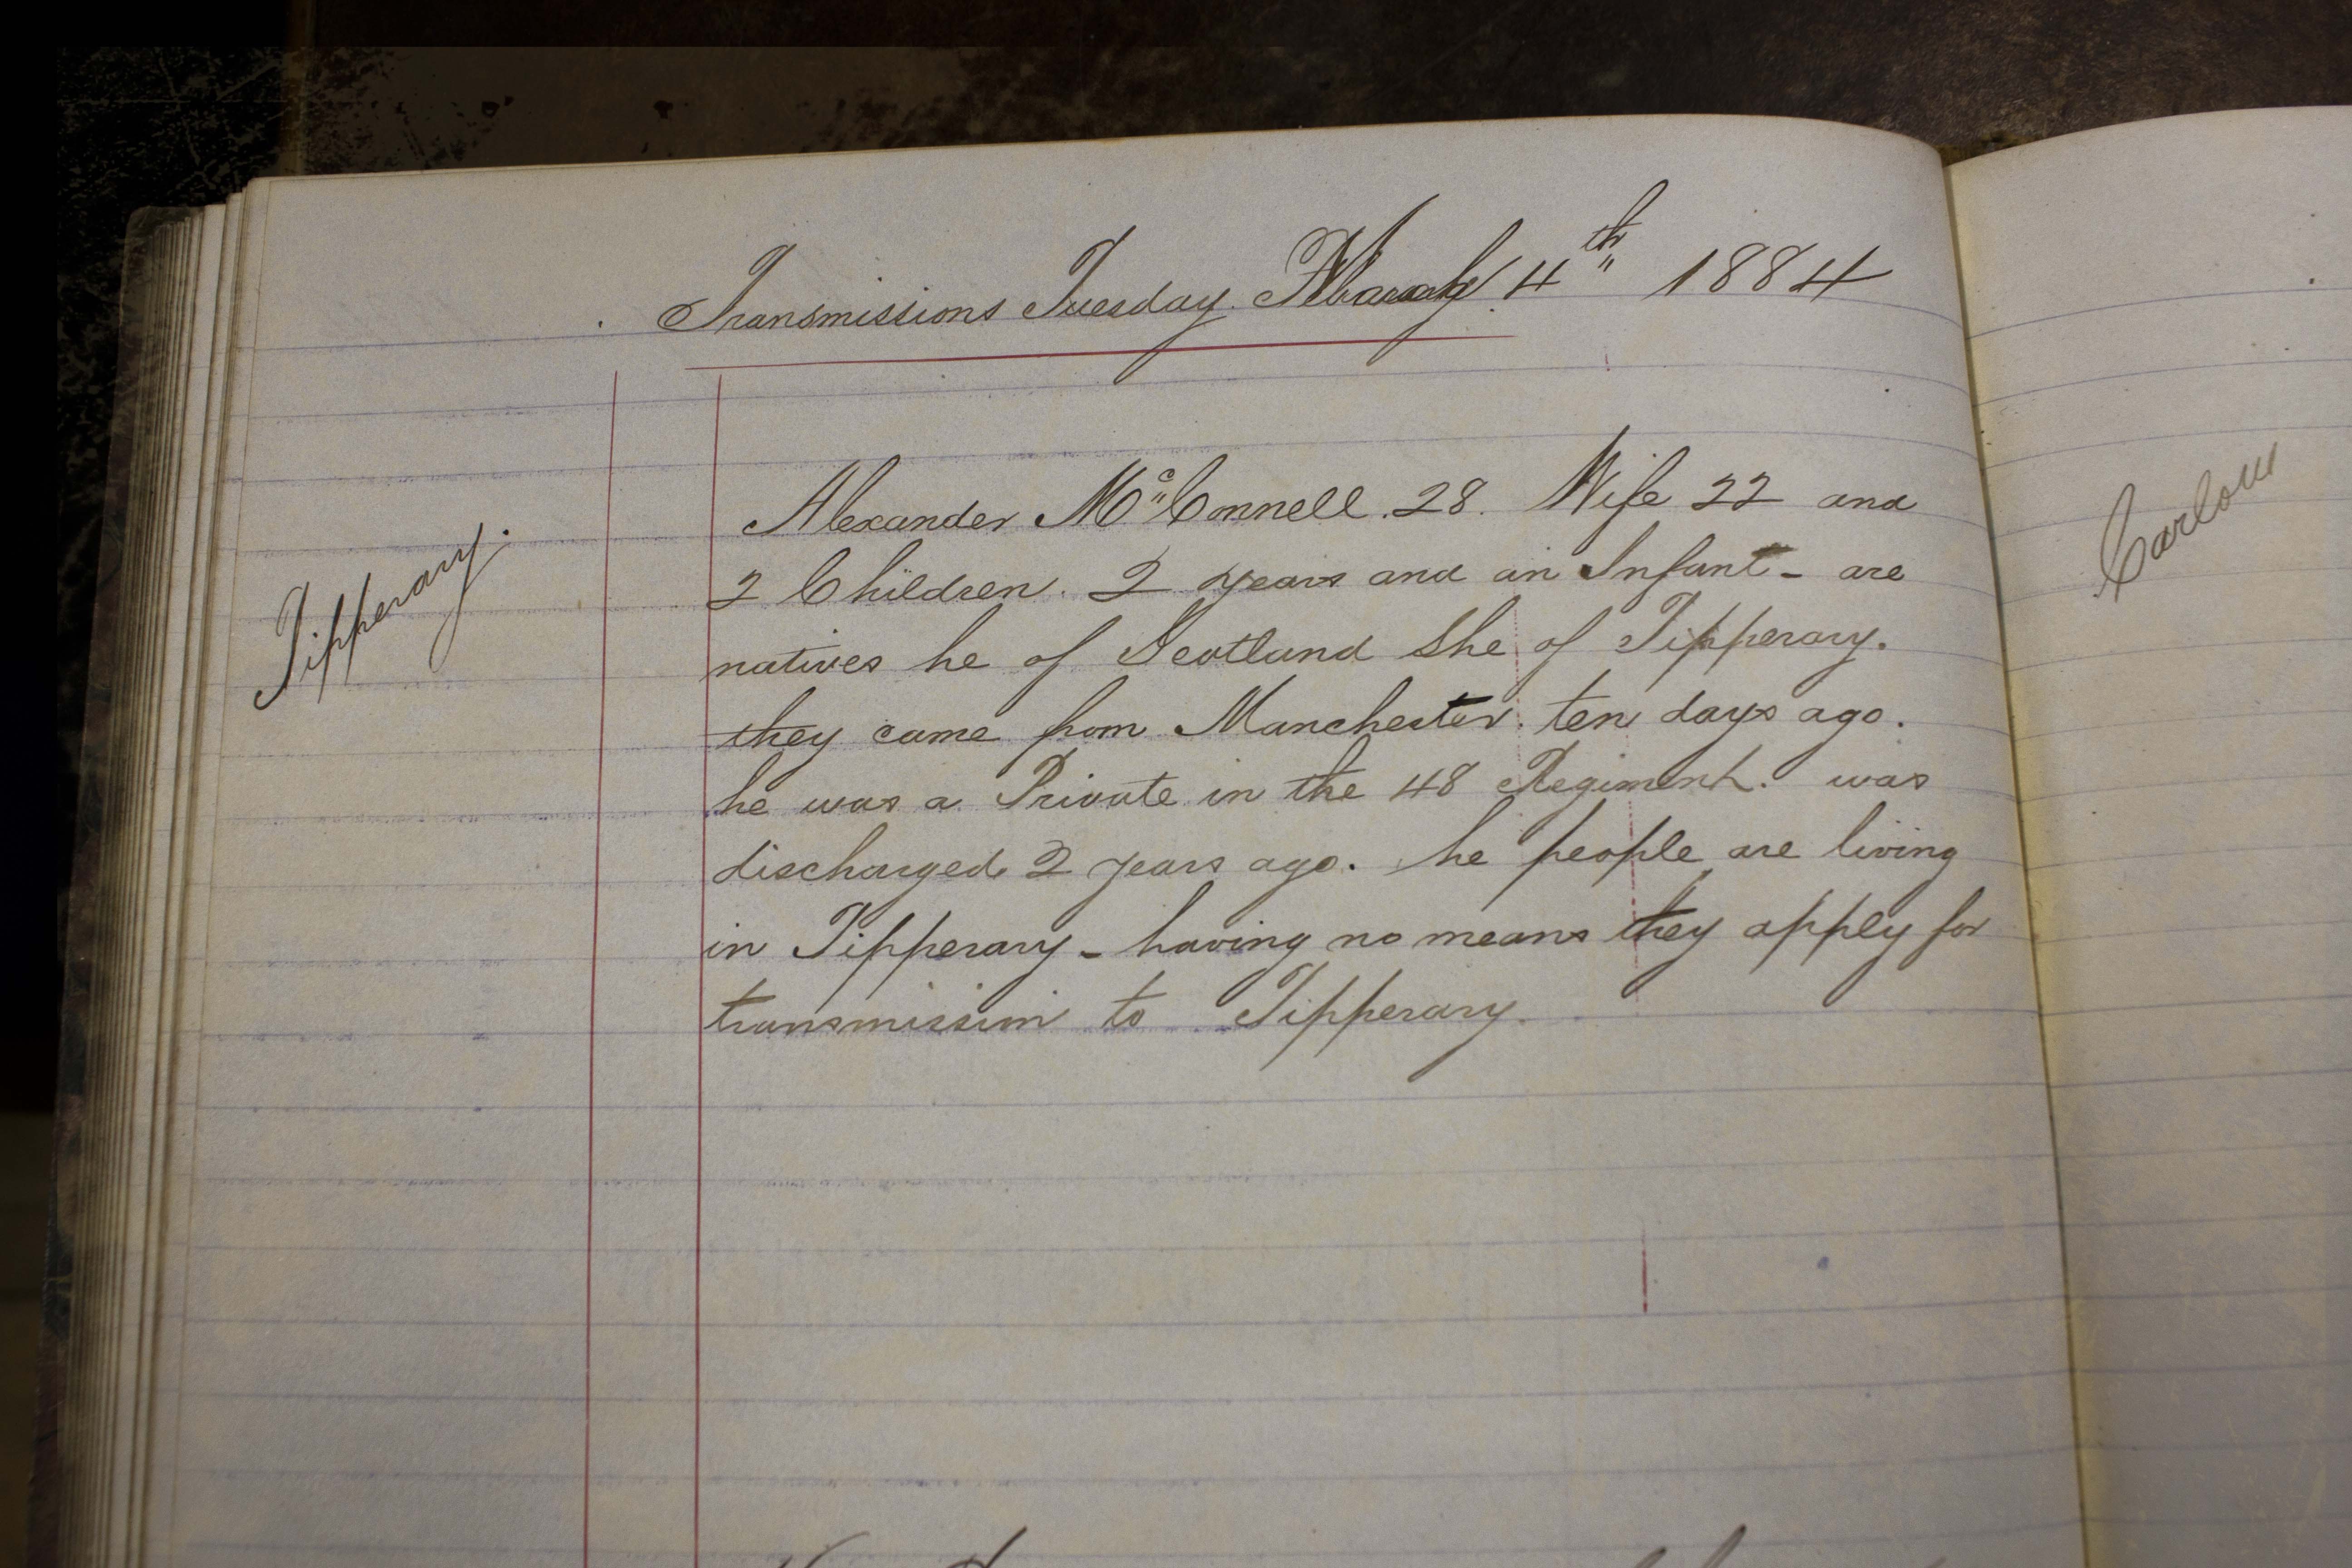 Transmissions Tuesday March 4th 1884
Tipperary.
Alexander Mc Connell. 28. Wife 22 and
2 Children. 2 years and an Infant - are
natives he of Scotland She of Tipperary.
they came from Manchester. ten days ago.
he was a Private in the 48 Regiment. was
discharged 2 years ago. he people are living
in Tipperary - having no means they apply for
transmission to Tipperary.
Carlow